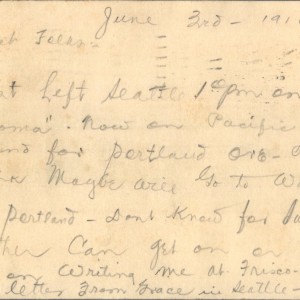 June 3rd - 191
Folks -
t Left Seattle 1 pm on
oma" - Now on Pacific
nd for Portland Ore -
Maybe will Go to W
Portland - Dont Know for
ther Can get on or
on Writing me at Frisco -
letter From Grace in Seattle -